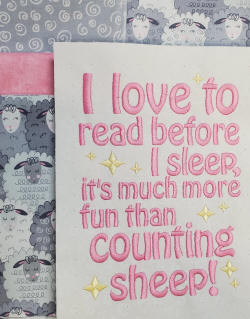 I love to
read before
I sleep,
it's much more
fun than
counting
sheep!